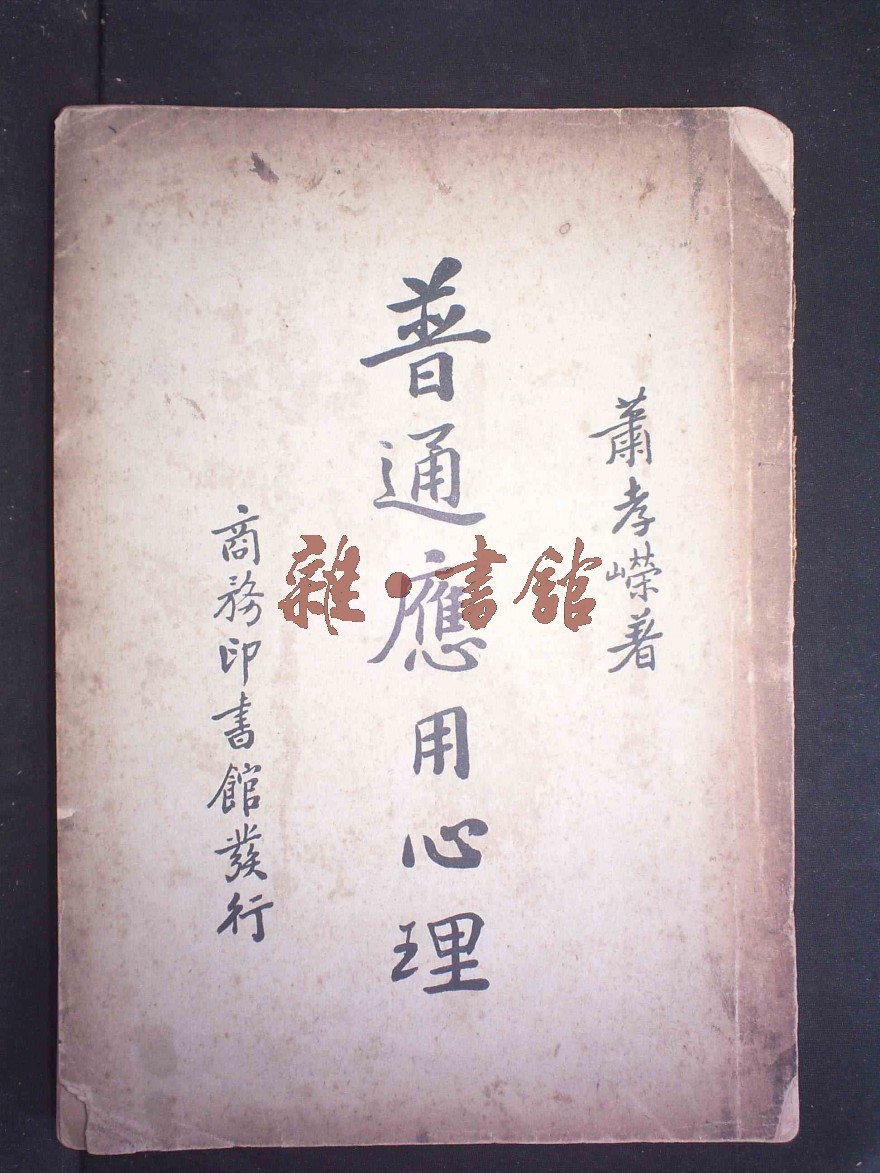 蕭孝嶸著
普通應用心理
商務印書館發行
雜·書館